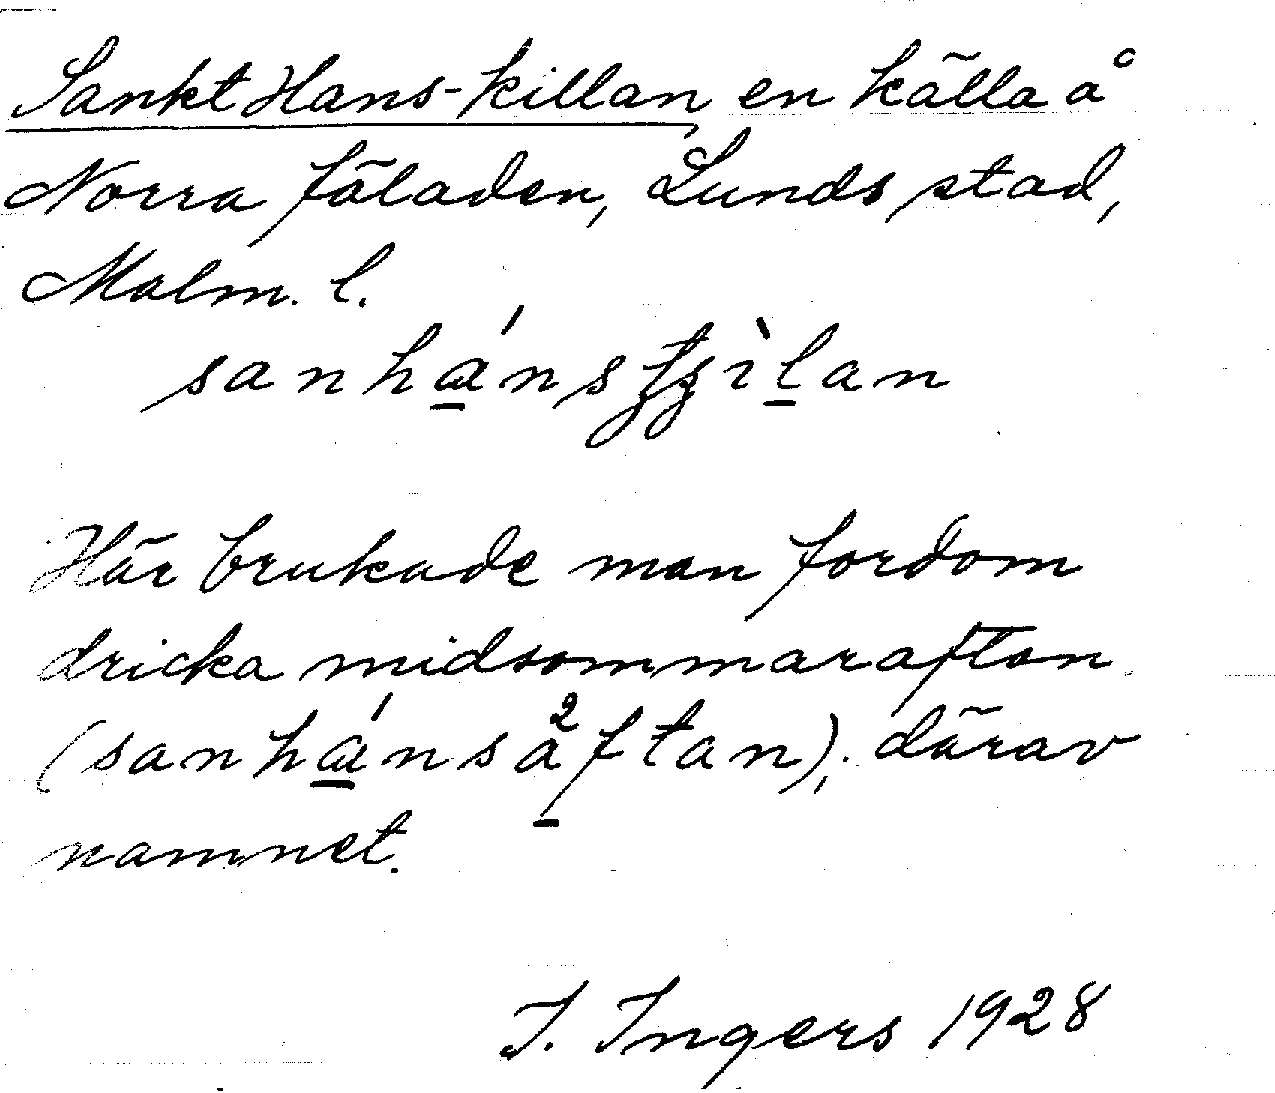 Sankt Hans-killan en källa å
Norra fäladen, Lunds stad,
Malm. l.
sanhánstʒìlan
Här brukade man fordom
dricka midsommarafton
(sanhánsa²ftan); därav
namnet.
I. Ingers 1928